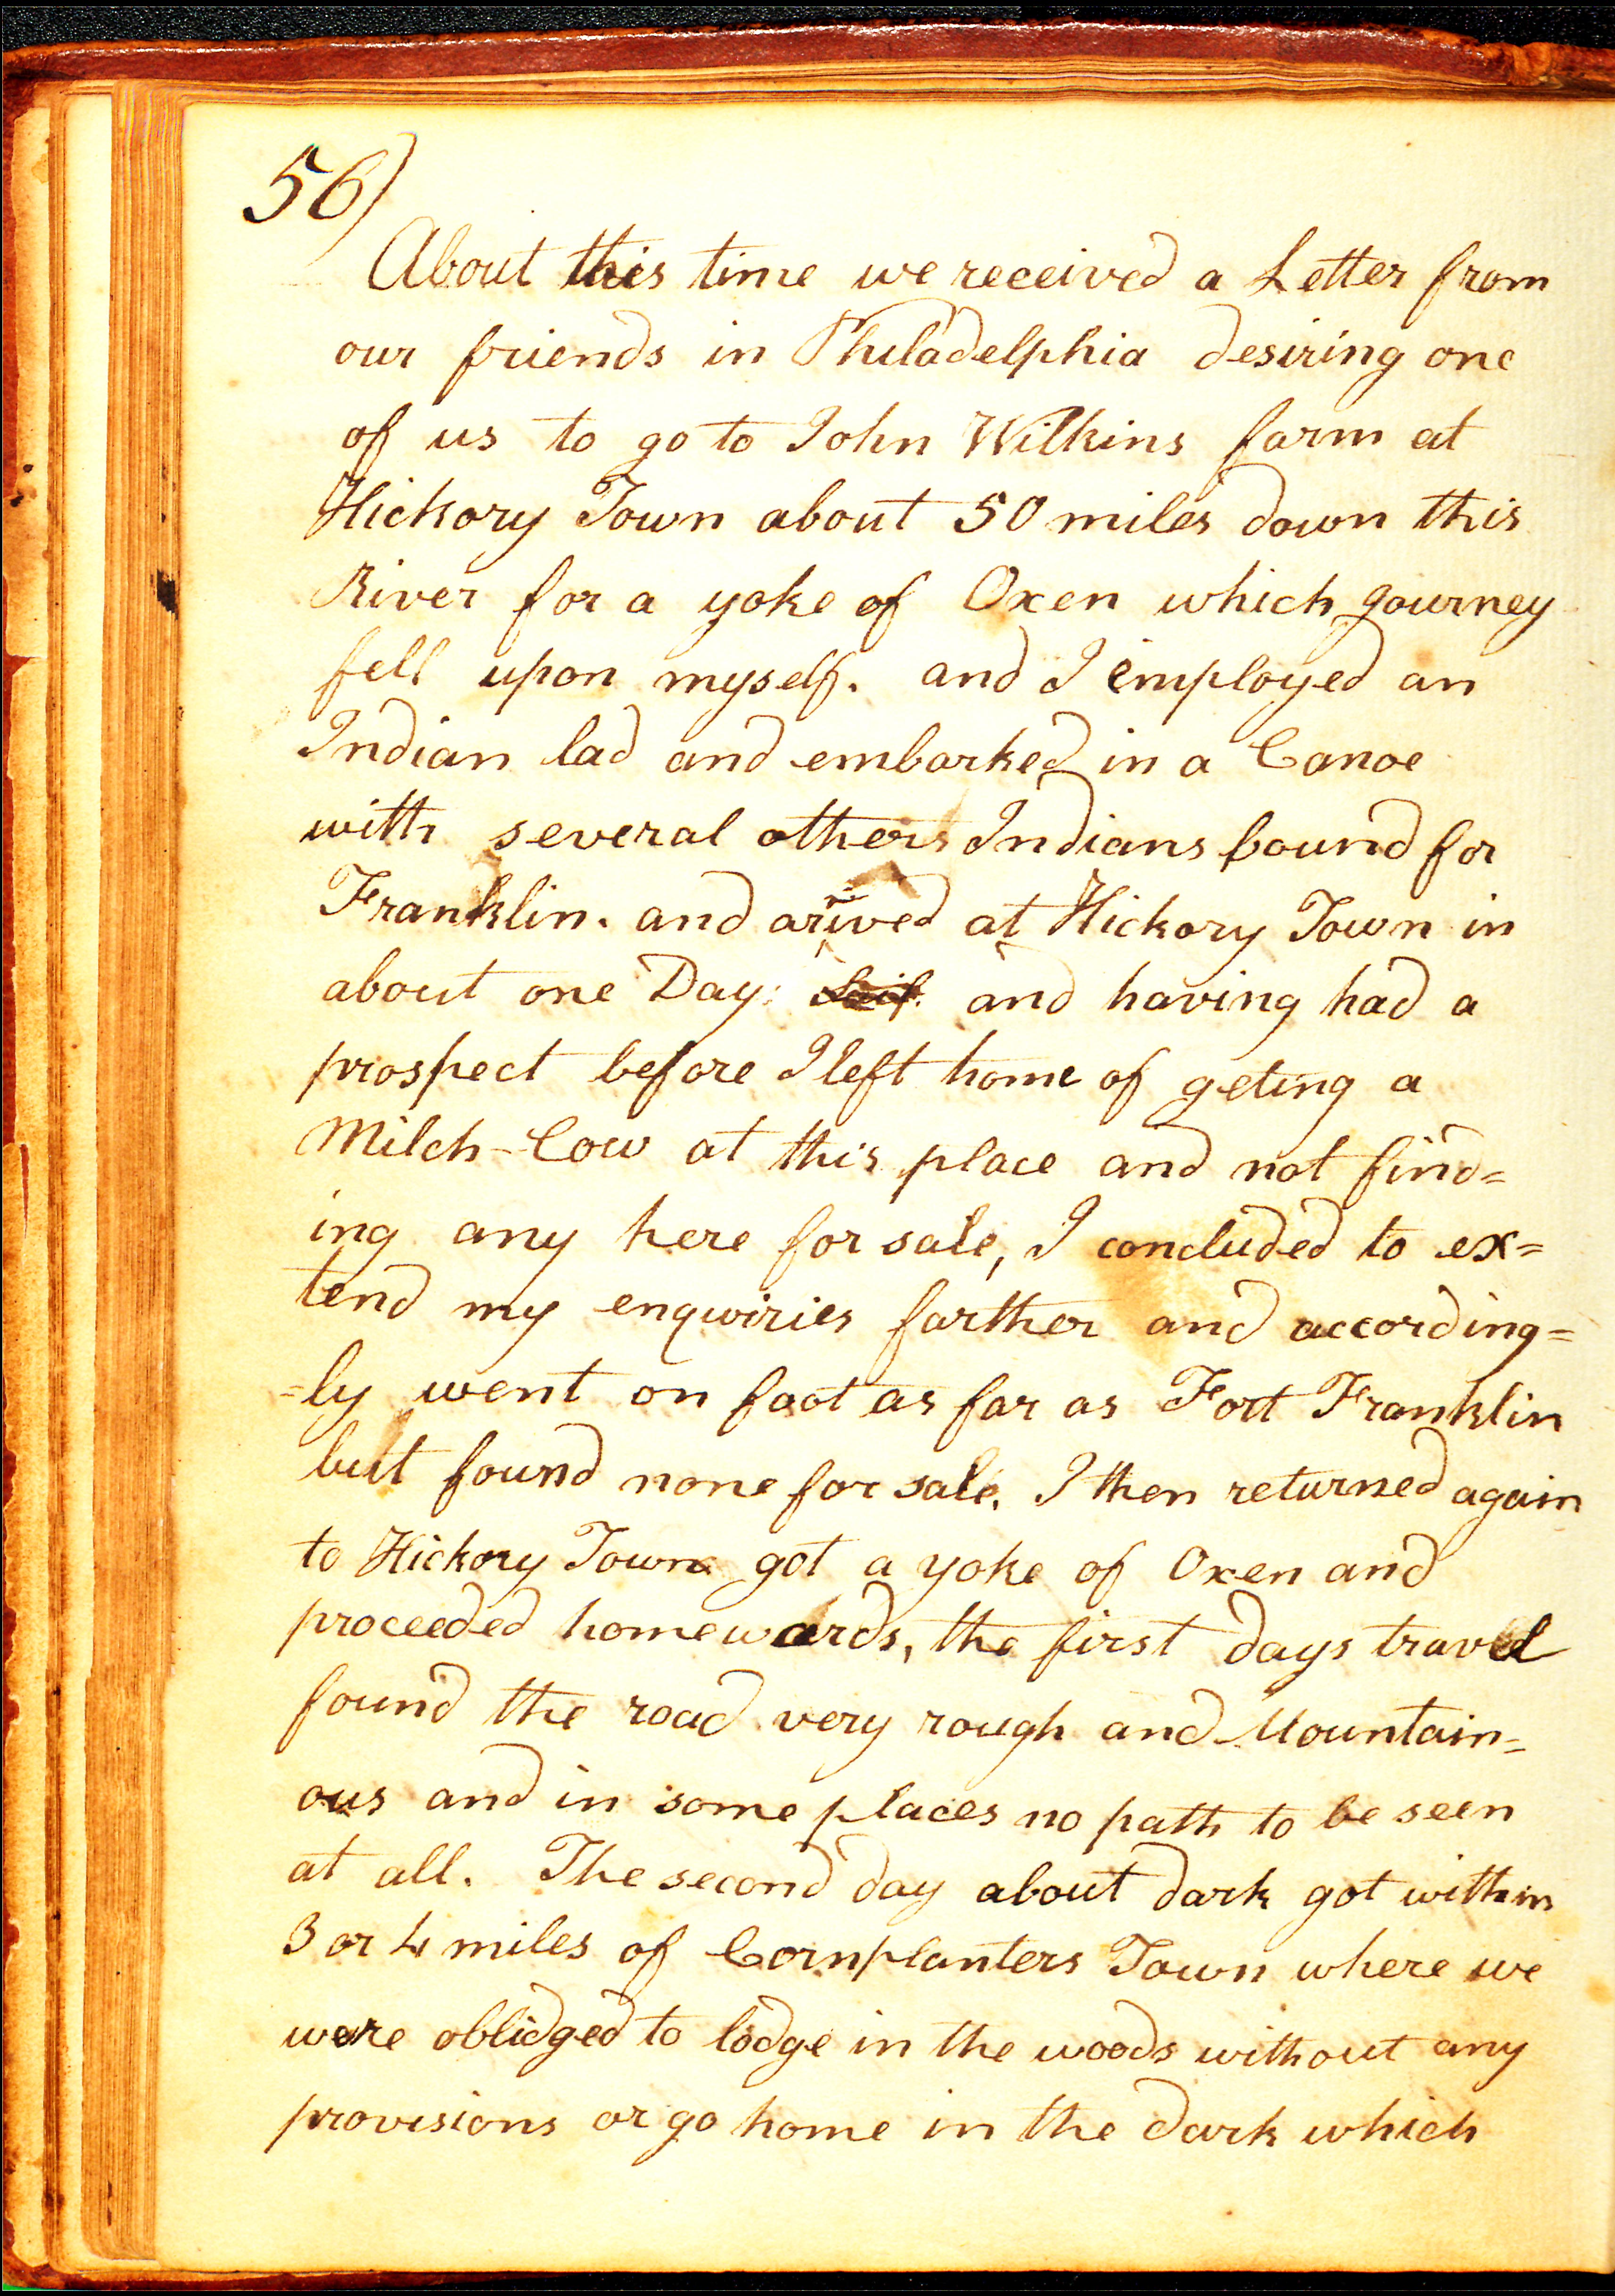 56)
About this time we received a Letter from
our friends in Philadelphia desiring one
of us to go to John Wilkins farm at
Hickory Town about 50 miles down this
River for a yoke of Oxen which Journey
fell upon myself. and I employed an
Indian lad and embarked in a Canoe
with several others Indians bound for
Franklin. and arrived at Hickory Town in
about one Day: and having had a
prospect before I left home of geting a
Milch-Cow at this place and not find=
ing any here for sale, I concluded to ex=
tend my enquiries farther and according=
=ly went on foot as far as Fort Franklin
but found none for sale. I then returned again
to Hickory Town got a yoke of Oxen and
proceeded homewards, the first days travel
found the road very rough and Mountain=
ous and in some places no path to be seen
at all. The second day about dark got within
3 or 4 miles of Cornplanters Town where we
were oblidged to lodge in the woods without any
provisions or go home in the dark which